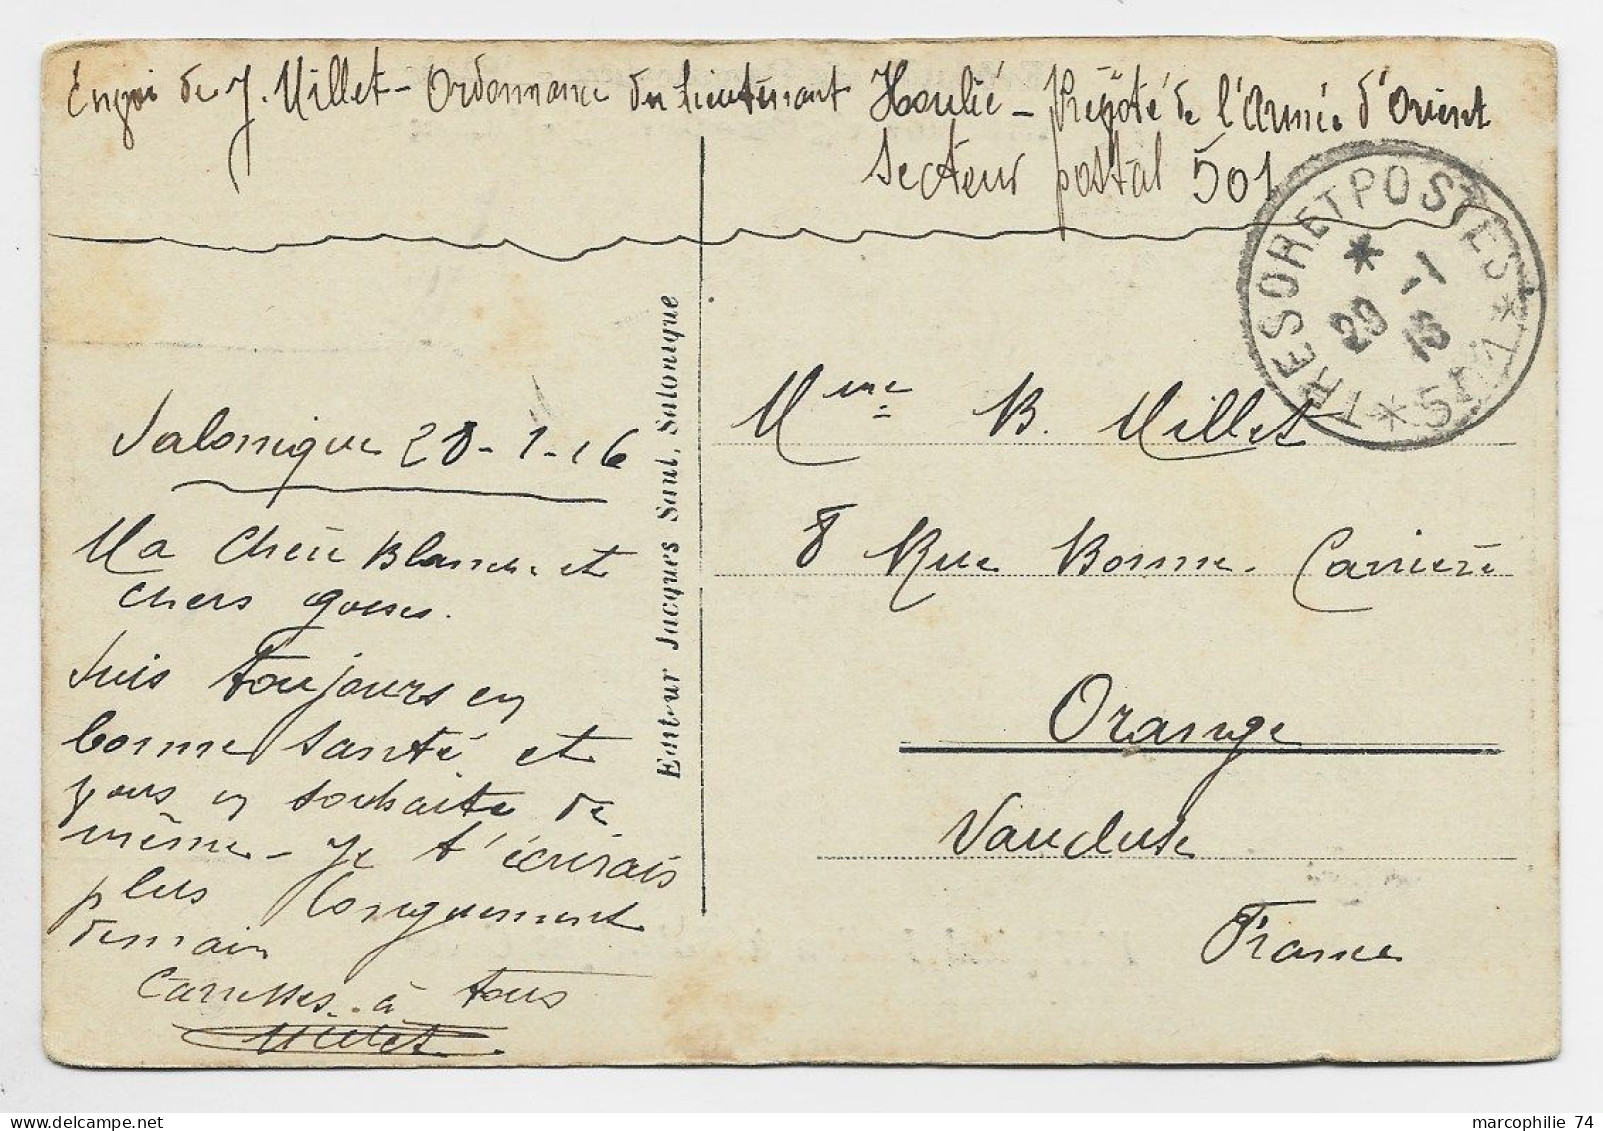 Envoi de J. Millet - Ordonnance du Lieutenant Houlié - Prévôté de l'Armée d'Orient
Secteur postal 501
TRESOR ET POSTES * 501 *
* 29 -1 16
Editeur Jacques Saul, Salonique
Salonique 28-1-16
Ma Chère Blanche et
chers gosses.
Suis toujours en
bonne santé et
vous en souhaite de
même - Je t'écrirais
plus longuement
demain
Caresses à tous
Millet
Mme B. Millet
8 Rue Bonne Carrière
Orange
Vaucluse
France
marcophilie 74